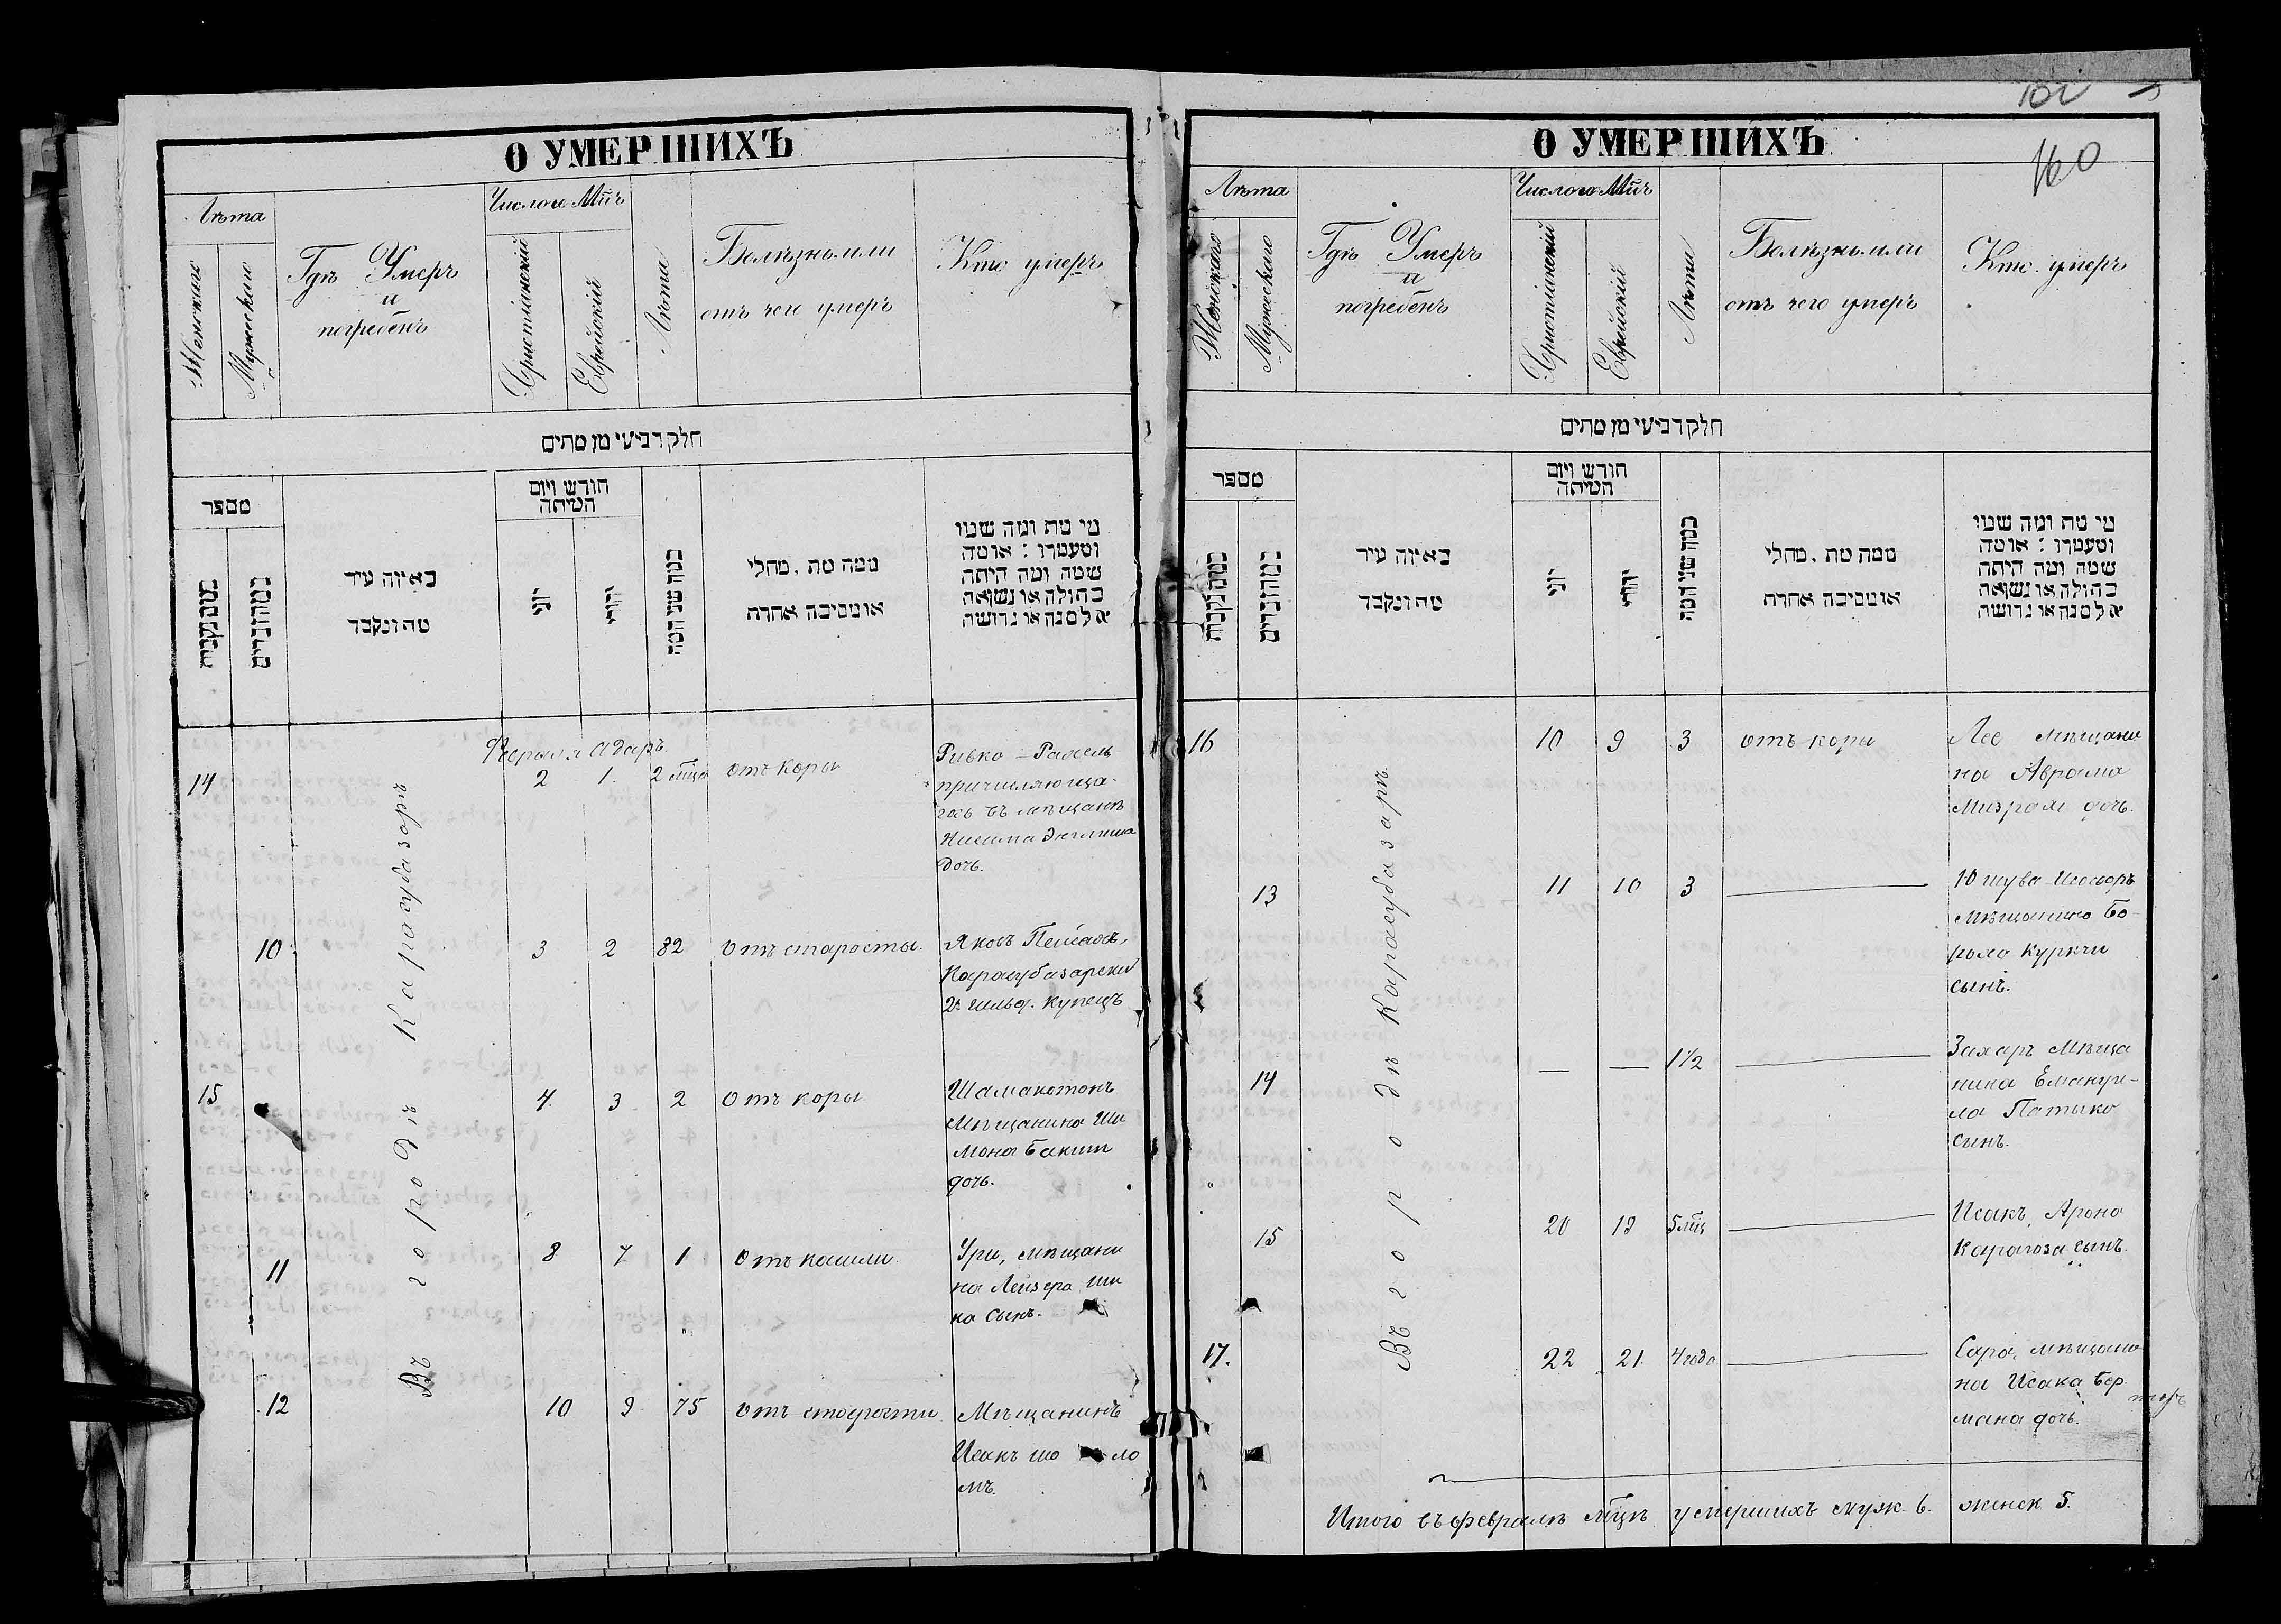 О УМЕРШИХЪ
Лѣта
Женскаго
Мужескаго
Гдѣ Умеръ
и
погребенъ
Число и Мц̃ъ
Христіанскій
Еврейскій
Лѣта
Болѣзнь или
отъ чего умеръ
Кто умеръ
חלק רביעי מן מתים
מספר
באיזה עיר
מת ונקבר
חודש ויום
המיתה
יוני
יהודי
כמה שני המת
ממה מת, מחלי
או מסיבה אחרת
מי מת ומה שמו
ומעמדו : או מה
שמה ומה היתה
בתולה או נשואה
אלמנה או גרושה
Въ городѣ Карасубазарѣ
Февраля Адаръ
14 2 1 2 мц̃а отъ коры Ривка-Рахель
причисляюща-
гось въ мѣщане
Нисима
дочь.
10 3 2 82 Отъ старосты. Яковъ Пейсахъ,
Карасубазарскій
2й гильд. купецъ
15 4 3 2 Отъ коры
Мѣщанина Ши
мона Бакши
дочь.
11 8 7 1 Отъ кашли Ури, мѣщани
на Лейзера Ши
ка сынъ.
12 10 9 75 Отъ старости Мѣщанинъ
Исакъ шо ло
мъ.
О УМЕРШИХЪ
160
Лѣта
Женскаго
Мужескаго
Гдѣ Умеръ
и
погребенъ
Число и Мц̃ъ
Христіанскій
Еврейскій
Лѣта
Болѣзнь или
отъ чего умеръ
Кто умеръ
חלק רביעי מן מתים
מספר
באיזה עיר
מת ונקבר
חודש ויום
המיתה
יוני
יהודי
כמה שני המת
ממה מת, מחלי
או מסיבה אחרת
מי מת ומה שמו
ומעמדו : או מה
שמה ומה היתה
בתולה או נשואה
אלמנה או גרושה
Въ городѣ Карасубазарѣ
16 10 9 3 отъ коры Лее мѣщани
на Аврама
Мизрахи дочь.
13 11 10 3 —
мѣщанина Бо-
роха Куркчи
сынъ.
14 — — 1½ — Захаръ мѣща
нина Емануи-
ла Патыко
сынъ.
15 20 19 5 мц̃ — Исакъ, Арона
Карагоза сынъ.
17. 22 21. 4 года — Сара, мѣщани
на Исака Бер
мана дочь.
Итого въ февралѣ мц̃ѣ умершихъ муж. 6. женск 5.